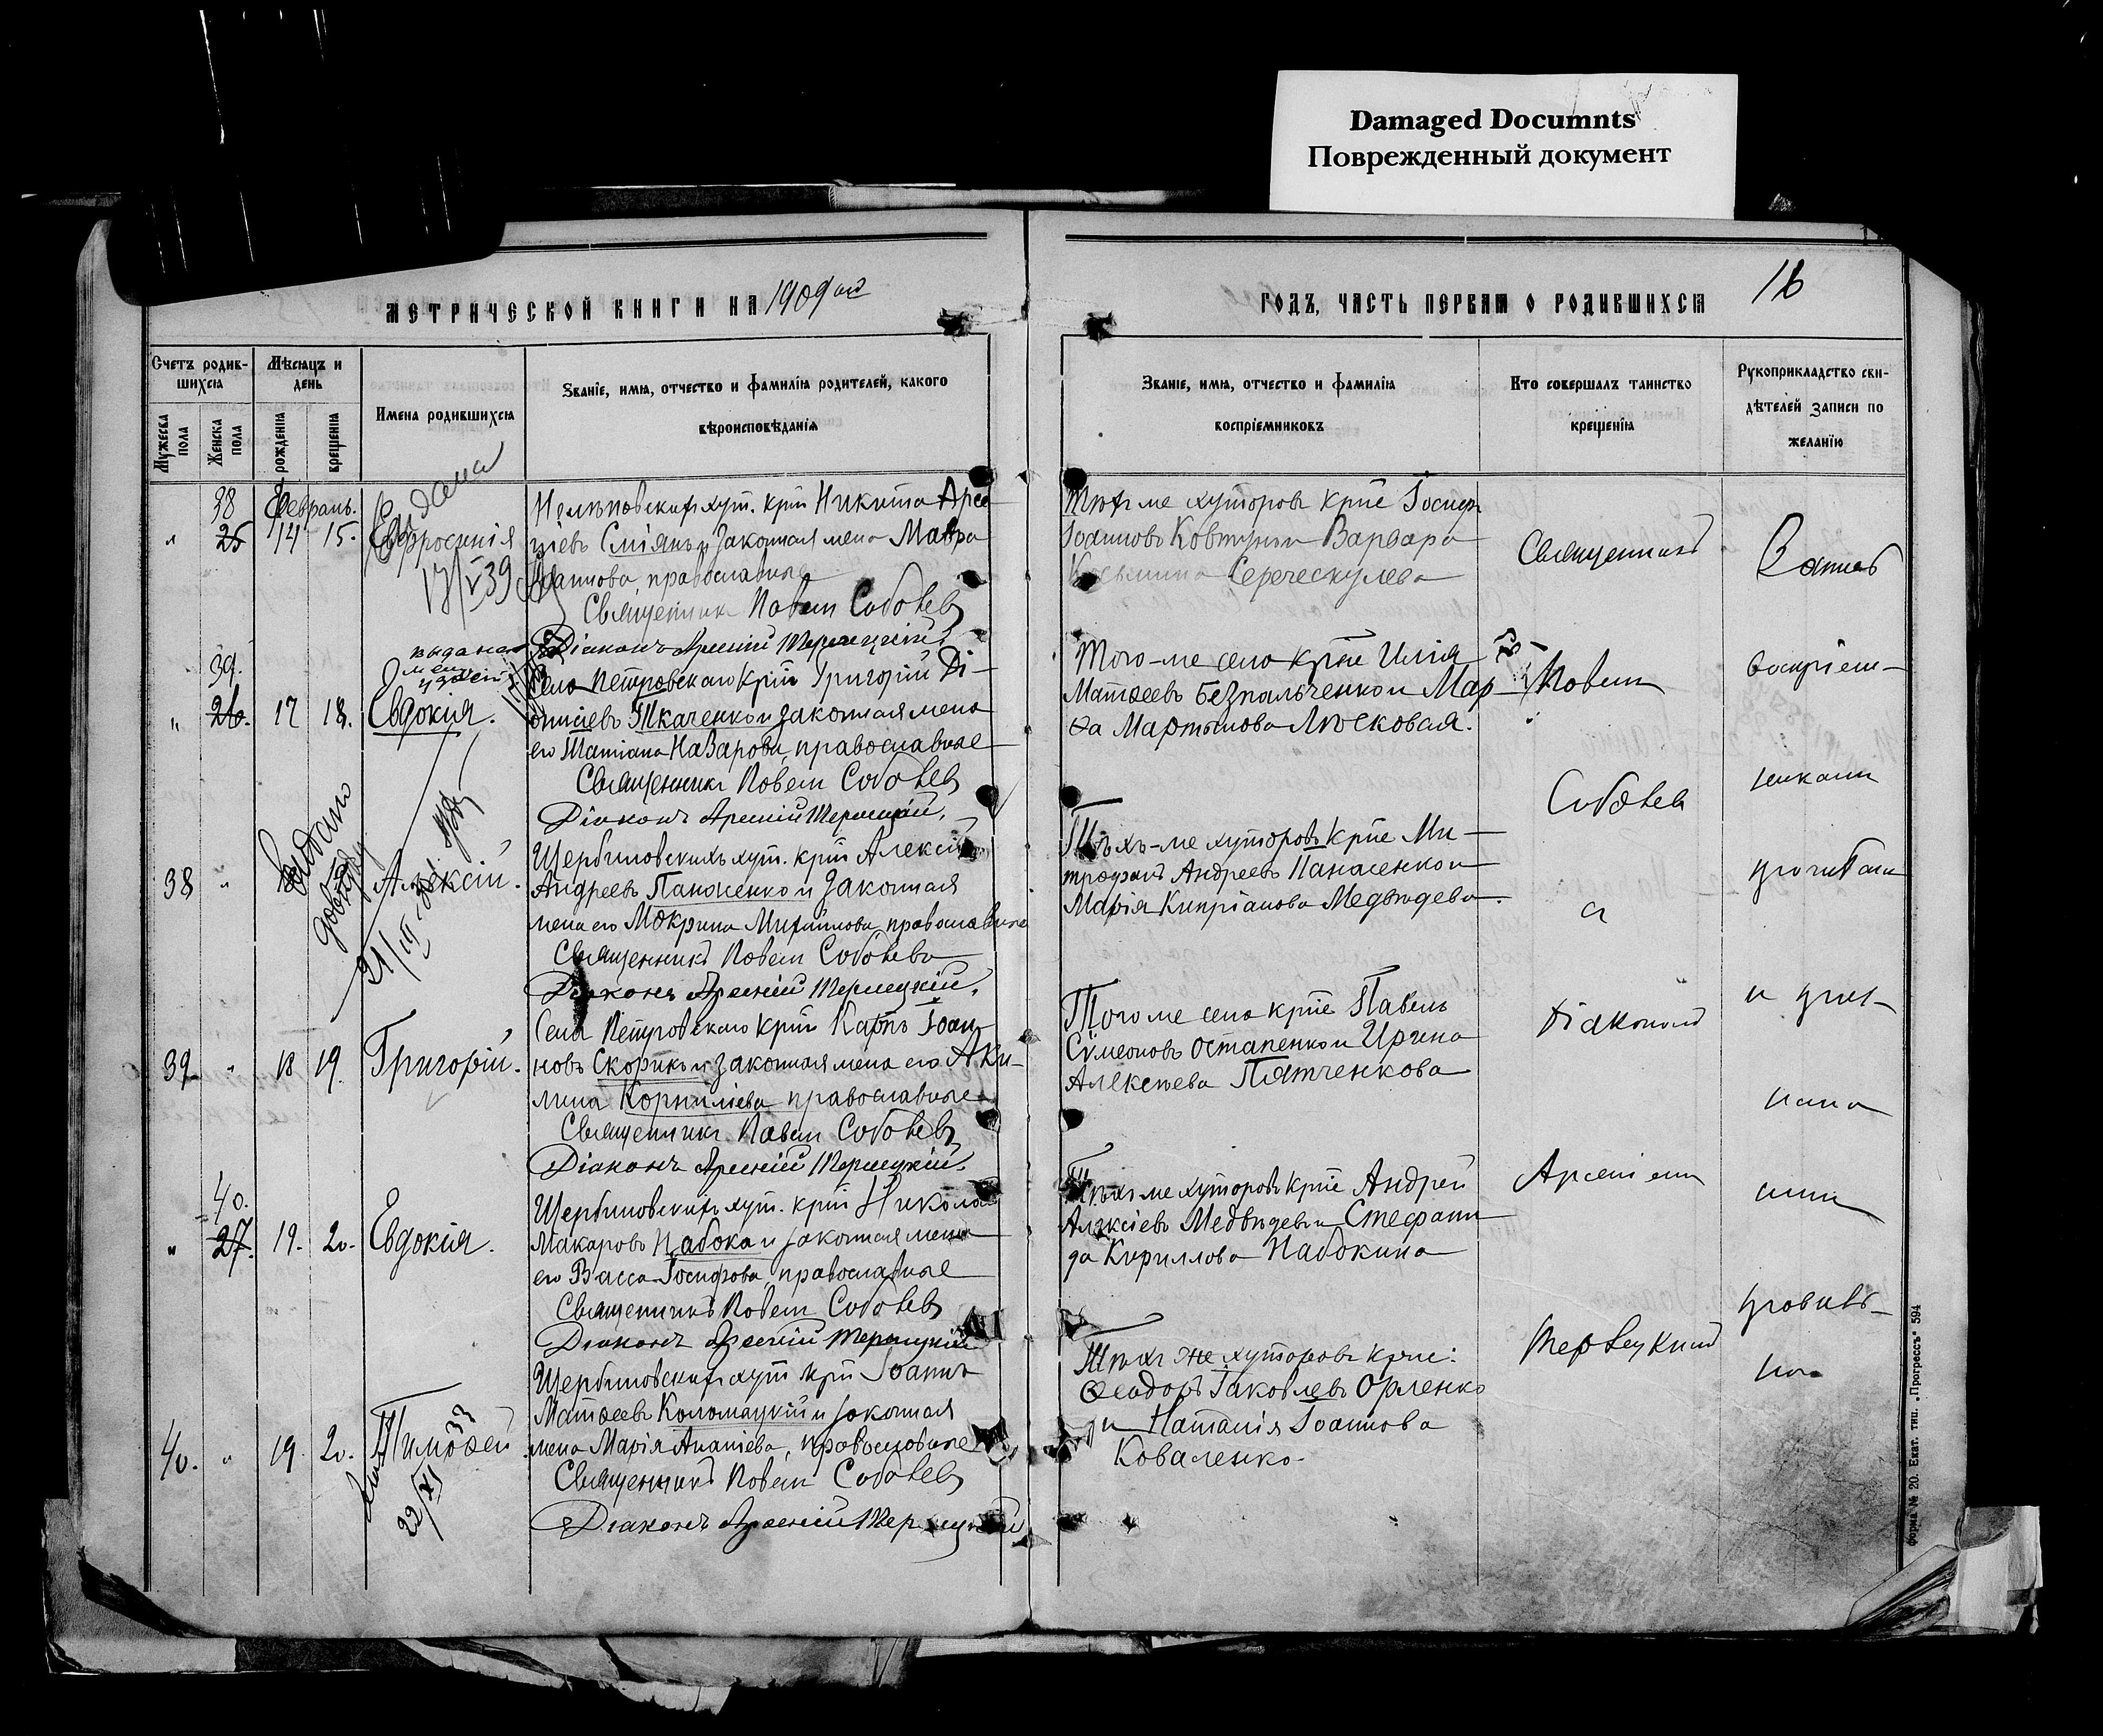 Damaged Documnts
Поврежденный документ
МЕТРИЧЕСКОЙ КНИГИ НА 1909 ый
ГОДЪ, ЧАСТЬ ПЕРВАЯ О РОДИВШИХСЯ
16
Счетъ родив-
шихся
Мужеска
пола
Женска
пола
Мѣсяцъ и
день
рожденія
крещенія
Имена родившихся
Званіе, имя, отчество и фамилія родителей, какого
вѣроисповѣданія
Званіе, имя, отчество и фамилія
воспріемниковъ
Кто совершалъ таинство
крещенія
Рукоприкладство сви-
дѣтелей записи по
желанію
38
25
Февраль.
14 15.
Евфросинія
17/V 39
хут. крн Никита Арсе
ніевъ Сміянъ и законная жена Мавра
православные
Священникъ Павелъ Соболевъ
Діаконъ Арсеній Терлецкій.
Тѣхъ же хуторовъ крне Іосифъ
Іоанновъ Ковтунъ и Варвара
Священникъ
Запись
39.
26. 17 18. Евдокія.
Села Петровскаго крн Григорій Ді-
онисіевъ Ткаченко и законная жена
его Татіана Назарова, православные
Священникъ Павелъ Соболевъ
Діаконъ Арсеній Терлецкій.
Того-же села крне Илія
Матѳеевъ Безпальченко и Мар-
ѳа Мартынова Лѣсковая.
Павелъ
воспріем-
Соболевъ
никами
38
Алексій.
21/III
Щербиновскихъ хут. крн Алексій
Андреевъ Панасенко и законная
жена его Мокрина Михайлова, православные
Священникъ Павелъ Соболевъ
Діаконъ Арсеній Терлецкій.
Тѣхъ-же хуторовъ крне Ми-
трофанъ Андреевъ Панасенко и
Марія Кипріанова Медвѣдева.
съ
прочитана
39 18 19. Григорій.
Села Петровскаго крн Карпъ Іоан-
новъ Скорикъ и законная жена его Аки-
лина Корниліева православные
Священникъ Павелъ Соболевъ
Діаконъ Арсеній Терлецкій.
Того же села крне Павелъ
Сѵмеоновъ Остапенко и Ирина
Алексѣева Пятченкова
діакономъ
40.
27. 19. 20. Евдокія.
Щербиновскихъ хут. крн Николай
Макаровъ Набока и законная жена
его Васса Іосифова, православные
Священникъ Павелъ Соболевъ
Діаконъ Арсеній Терлецкій
Тѣхъ же хуторовъ крне Андрей
Алексіевъ Медвѣдевъ и Стефани
да Кириллова Набокина
Арсеніемъ
40. 19. 20. Тимоѳей
22/XI 33
Щербиновскихъ хут крн Іоаннъ
Матѳеевъ Коломацкій и законная
жена Марія Ананіева, православные
Священникъ Павелъ Соболевъ
Діаконъ Арсеній Терлецкій
Тѣхъ же хуторовъ крне:
Ѳеодоръ Іаковлевъ Орленко
и Наталія Іоаннова
Коваленко
Терлецкимъ
Форма № 20. Екат. тип. „Прогрессъ" 594